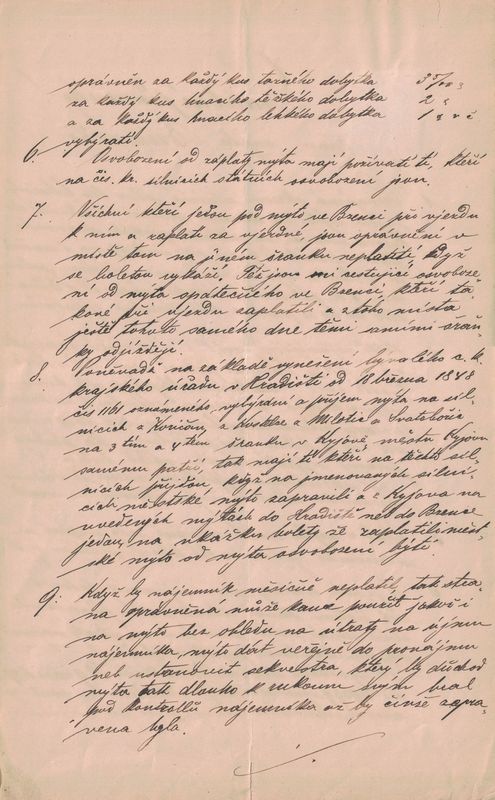 oprávněn za každý kus tažného dobytka 3
za každý kus hnacího těžkého dobytka 2 "
a za každý kus hnacího lehkého dobytka 1 "
vybýrati.
6. Osvobození od zaplaty mýta mají požívati ti, kteří
na čís. kr. silnicích státních osvobození jsou.
7. Všichni kteří jedou pod mýto ve Brenci při vjezdu
k ním a zaplatí za vjezdné, jsou oprávněni v
místě tom na jiném šranku neplatiti, když
se boletou vykáží. Též jsou cestující osvoboze
ni od mýta spatečného ve Brenci, kteří ta-
kové při vjezdu zaplatili a z toho místa
ještě tohoto samého dne těmi samími šran-
ky odjíždějí.
8. Poněvadž na základě vynešení byvalého c. k.
krajského úřadu v Hradišti od 18 března 1848
čís 1161 oznámeného, vybýrání a příjem mýta na sil-
nicích z a Milotic a Svatobořic
na 3tím a 4tém šranku v Kyjově městu Kyjovu
samému patří, tak mají ti kteří na těchto sil-
nicích přijdou, když na jmenovaných silni-
cích městské mýto zapravili a z Kyjova na
uvedených mýtách do Hradiště neb do Brence
jedou, na ukázku bolety že zaplatili měst-
ské mýto od mýta osvobozeni býti
9. Když by nájemník měsíčně neplatil, tak stra-
na oprávněna může kauci použít jakož i
na mýto bez ohledu na útraty na újmu
nájemníka, mýto dát veřejně do pronájmu
neb ustanovit sekvestra, který by důchod
mýta tak dlouho k rukoum svým bral
pod kontrollů nájemníka až by činže zapra-
vena byla.